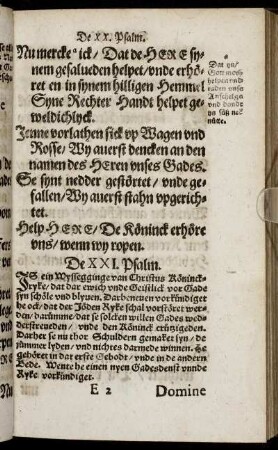 De XX. Psalm.
Nu mercke ick / Dat de HERE sy-
nem gesalueden helpet / vnde erhö-
ret en in synem hilligen Hemmel
Syne Rechter Handt helpet ge-
weldichlyck.
Jenne vorlathen sick vp Wagen vnd
Rosse / Wy auerst dencken an den
namen des HEren vnses Gades.
Se synt nedder gestörtet / vnde ge-
fallen / Wy auerst stahn vpgerich-
tet.
Help HERE / De Köninck erhöre
vns / wenn wy ropen.
Dat ys /
Gott moth
helpen vnd
raden vnse
Anschlege
vnd
ys süß ne
nütte.
De XXI. Psalm.
IS ein Wyssegginge van Christus Köninck-
ryke / dat dar ewich vnde Geistlick vor Gade
syn schöle vnd blyuen. Darbeneuen vorkündiget
he ock / dat der Jöden Ryke schal vorstöret wer-
den / darümme / dat se solcken willen Gades wed-
derstreueden / vnde den Köninck crützigeden.
Darher se nu thor Schuldern gemaket syn / de
jümmer lyden / vnd nichtes darmede winnen.
gehöret in dat erste Gebodt / vnde in de andern
Bede. Wente he einen nyen Gadesdenst vnnde
Ryke vorkündiget.
E 2 Domine